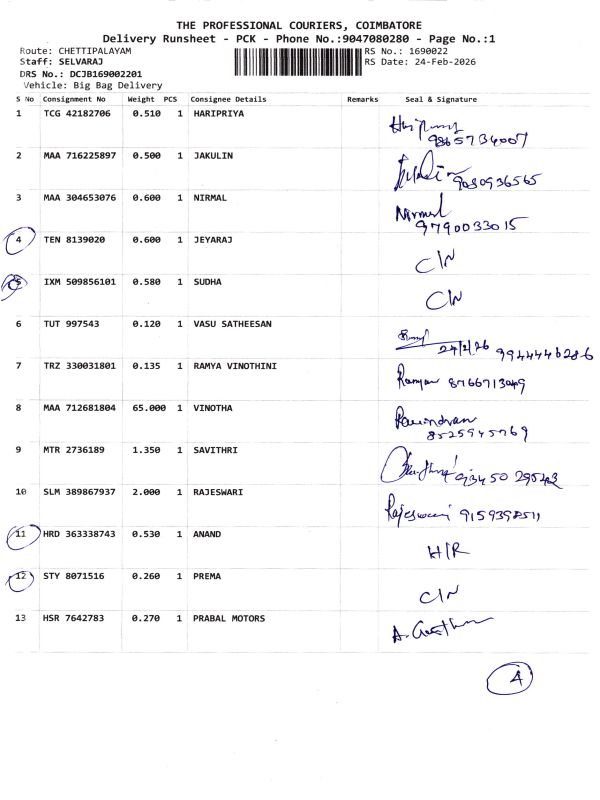 THE PROFESSIONAL COURIERS, COIMBATORE
Delivery Runsheet - PCK - Phone No.:9047080280 - Page No.:1
Route: CHETTIPALAYAM RS No.: 1690022
Staff: SELVARAJ RS Date: 24-Feb-2026
DRS No.: DCJB169002201
Vehicle: Big Bag Delivery
S No Consignment No Weight PCS Consignee Details Remarks Seal & Signature
1 TCG 42182706 0.510 1 HARIPRIYA
9865734007
2 MAA 716225897 0.500 1 JAKULIN
9080936565
3 MAA 304653076 0.600 1 NIRMAL Nirmal
9790033015
4 TEN 8139020 0.600 1 JEYARAJ C/N
5 IXM 509856101 0.580 1 SUDHA C/N
6 TUT 997543 0.120 1 VASU SATHEESAN
24/2/26 9944446286
7 TRZ 330031801 0.135 1 RAMYA VINOTHINI Ramya
8 MAA 712681804 65.000 1 VINOTHA Ravindran
8525945769
9 MTR 2736189 1.350 1 SAVITHRI
10 SLM 389867937 2.000 1 RAJESWARI Rajeswari 9159398511
11 HRD 363338743 0.530 1 ANAND H/R
12 STY 8071516 0.260 1 PREMA C/N
13 HSR 7642783 0.270 1 PRABAL MOTORS
4